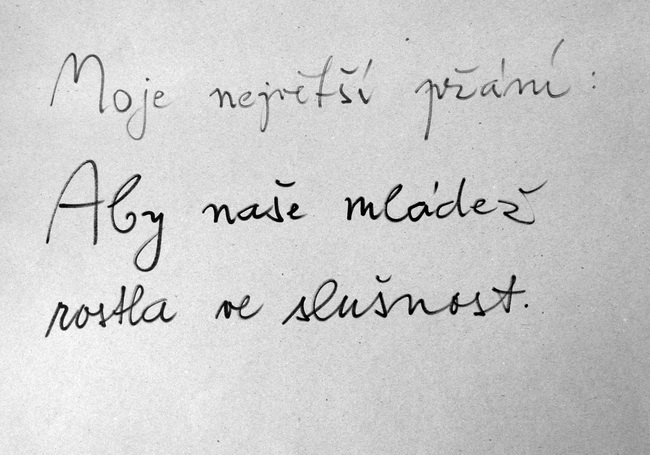 Moje největší přání:
Aby naše mládež
rostla ve slušnost.